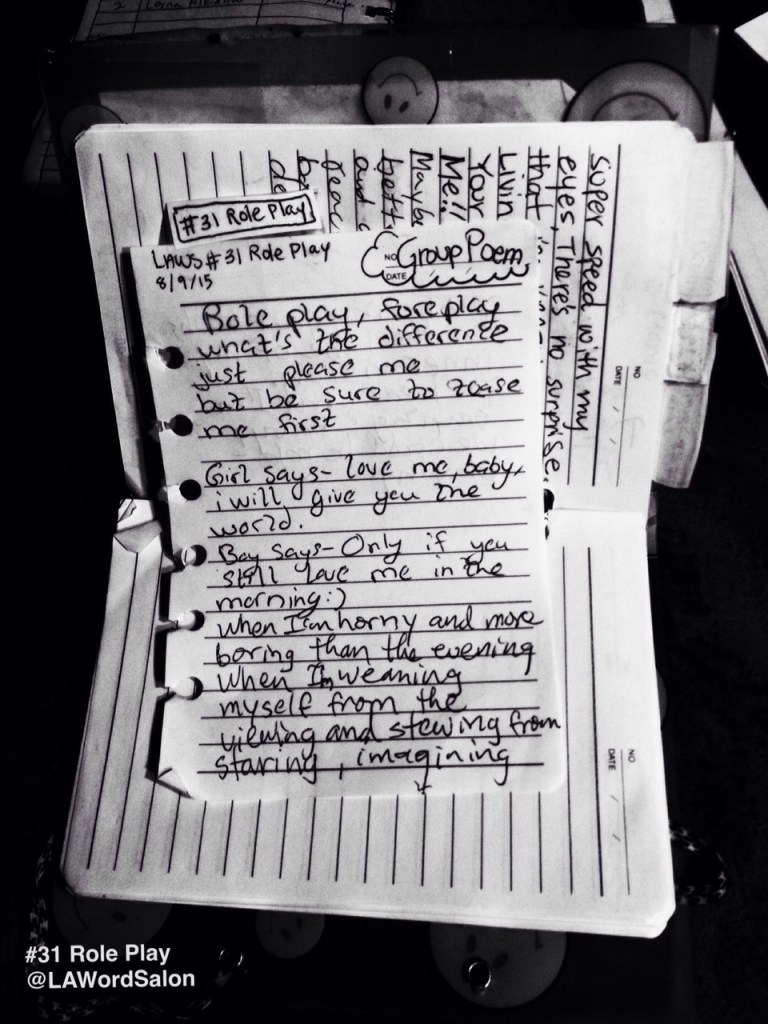 #31 Role Play
LAWS #31 Role Play
8/9/15
NO
DATE
Group Poem
Role play, foreplay
what's the difference
just please me
but be sure to tease
me first
Girl says- love me, baby,
i will give you the
world.
Boy says- Only if you
still love me in the
morning:)
When I'm horny and more
boring than the evening
When I'm weaning
myself from the
viewing and stewing from
staring, imagining
super speed with my
eyes, There's no surprise
that
Livin
Your
Me!!
Mayb
bett
and
NO
DATE / /
NO
DATE / /
#31 Role Play
@LAWordSalon